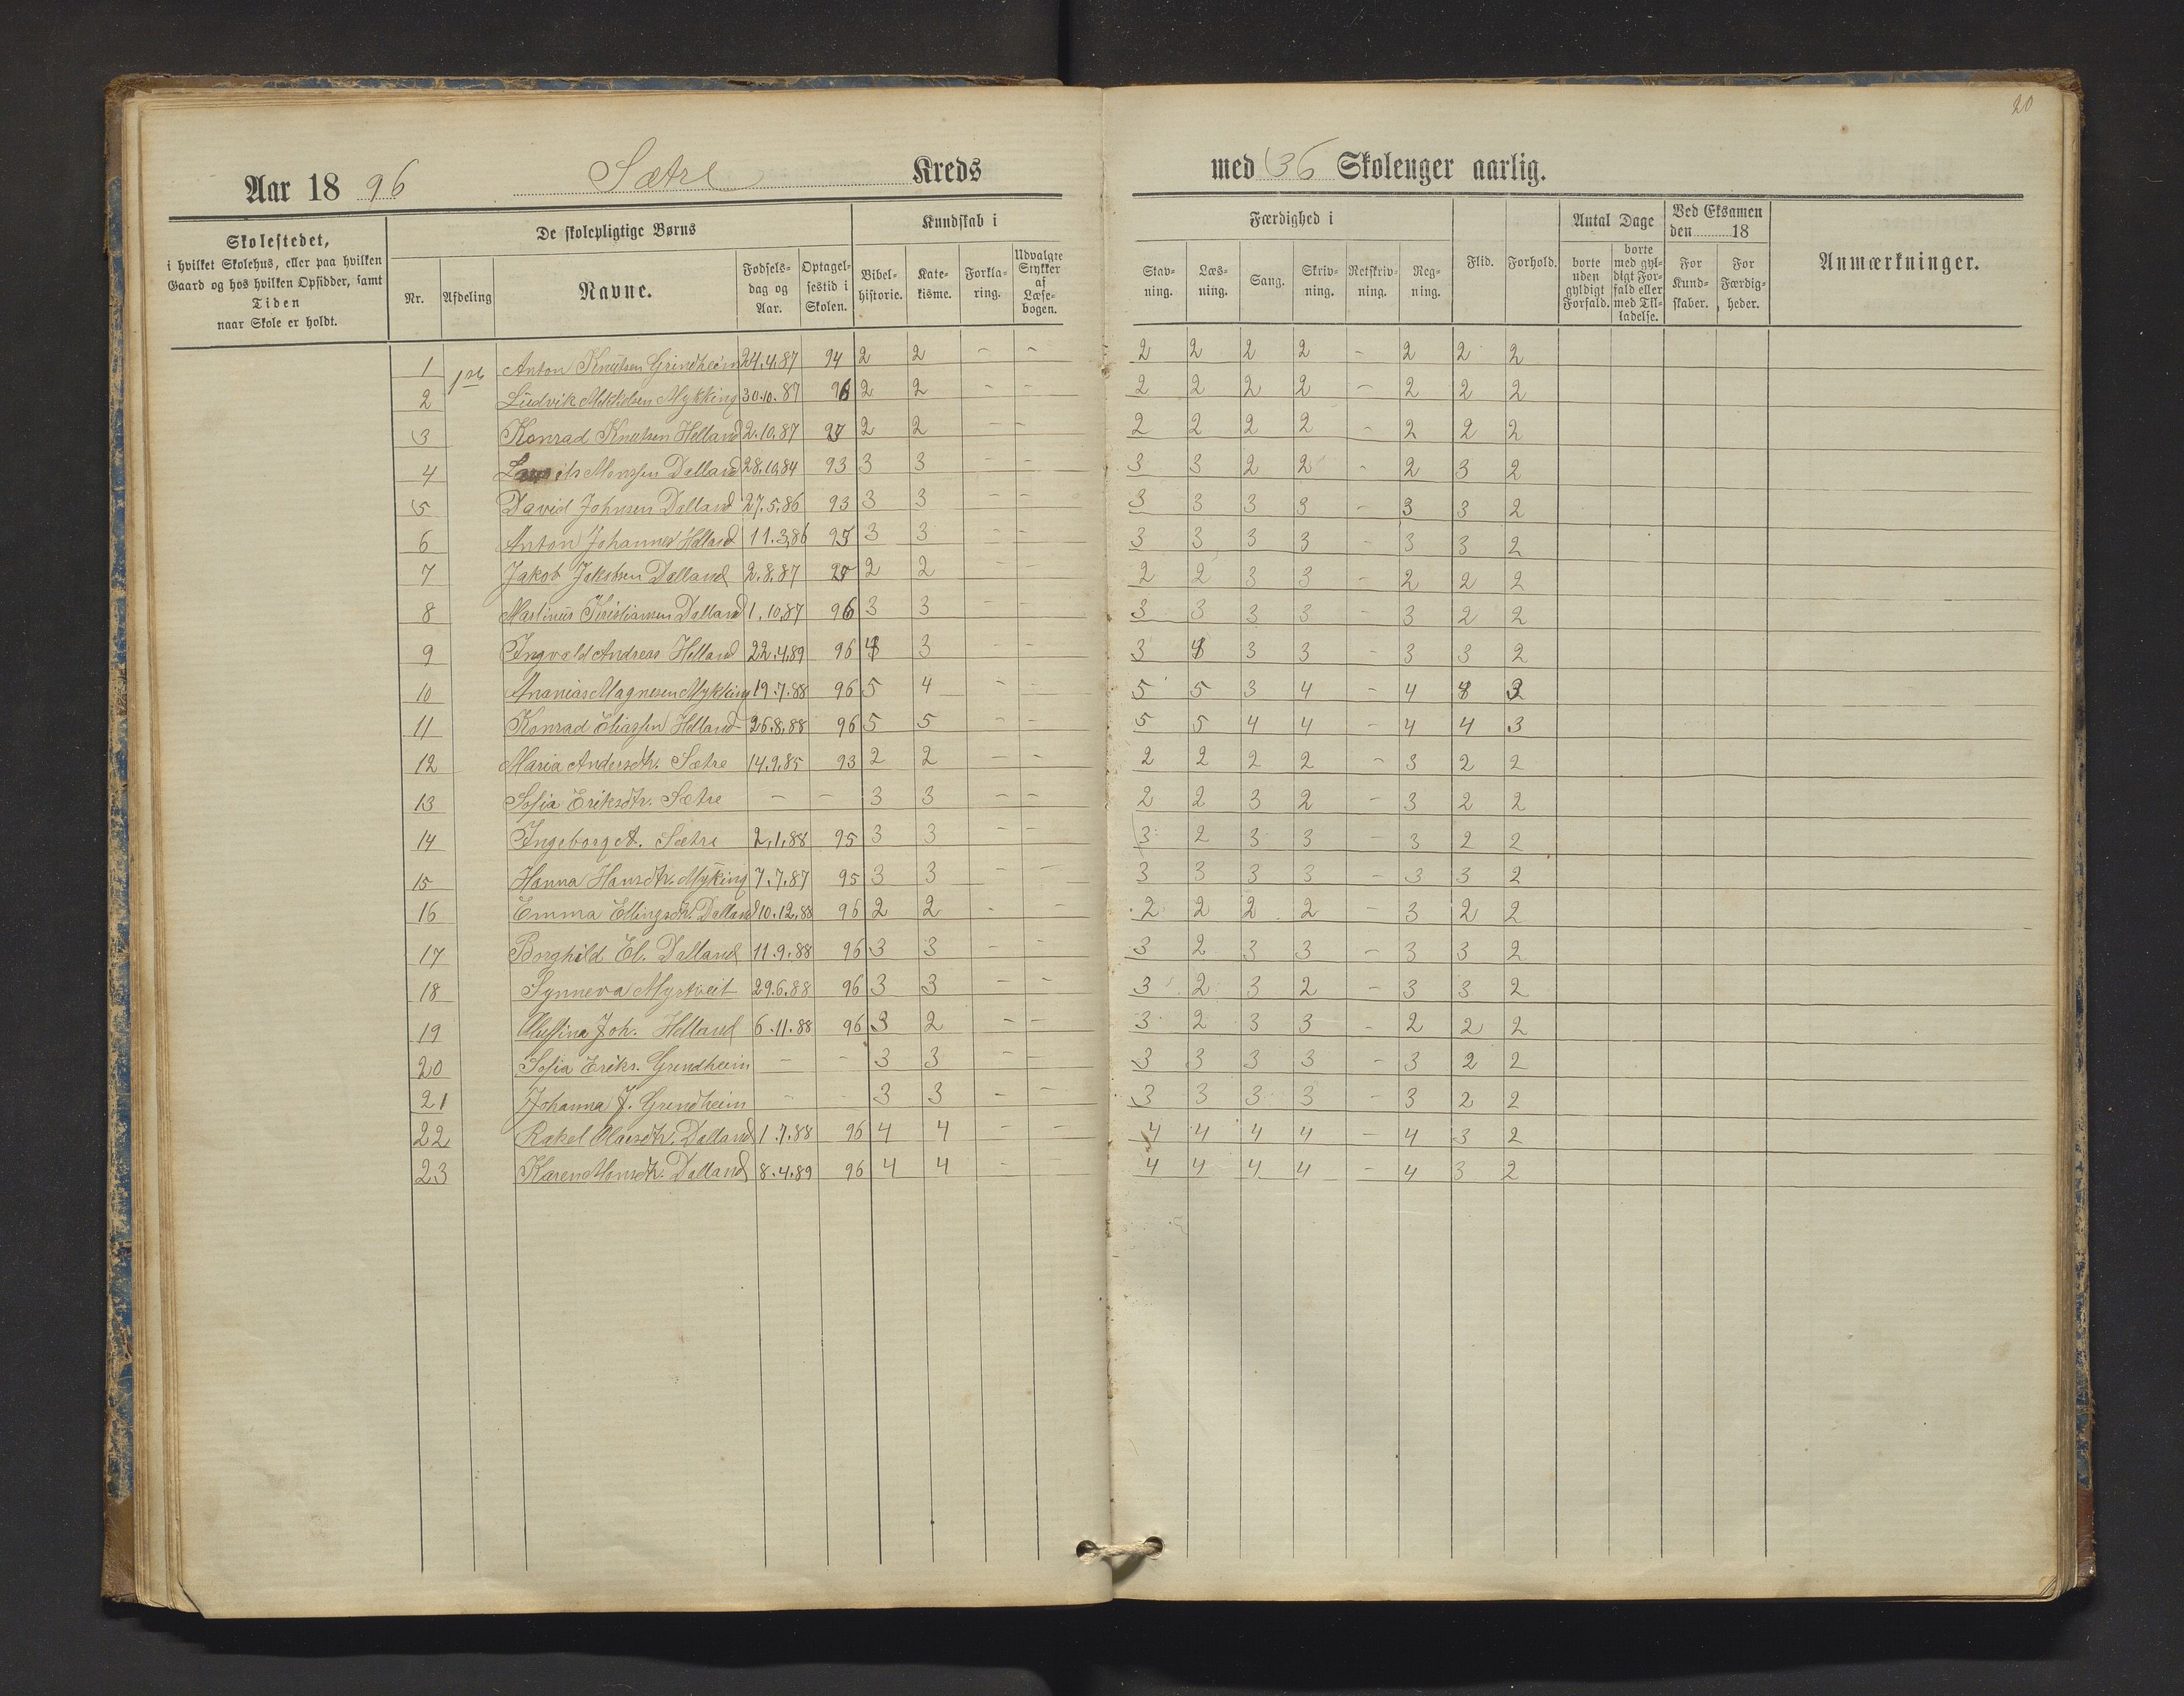 20
Aar 1896 Sætre Kreds med 36 Skoleuger aarlig.
Skolestedet, i hvilket Skolehus, eller paa hvilken Gaard og hos hvilken Opsidder, samt Tiden naar Skole er holdt.
De skolepligtige Børns
Nr. Afdeling Navne. Fødselsdag og Aar. Optagelsestid i Skolen.
Kundskab i
Bibelhistorie. Katekisme. Forklaring. Udvalgte Stykker af Læsebogen.
Færdighed i
Stavning. Læsning. Sang. Skrivning. Retskrivning. Regning. Flid. Forhold.
Antal Dage
borte uden gyldigt Forfald. borte med gyldigt Forfald eller med Tilladelse.
Ved Eksamen den 18
For Kundskaber. For Færdigheder.
Anmærkninger.
1 1ste Anton Knutsen Grindheim 24.4.87 94 2 2 - - 2 2 2 2 - 2 2 2
2 Ludvik Mikkelsen Mykking 30.10.87 96 2 2 - - 2 2 2 2 - 2 2 2
3 Konrad Knutsen Helland 2.10.87 2 2 - - 2 2 2 2 - 2 2 2
4 Monssen Dalland 28.10.84 93 3 3 - - 3 3 2 2 - 2 3 2
5 David Johnsen Dalland 27.5.86 93 3 3 - - 3 3 3 3 - 3 3 2
6 Anton Johannes Helland 11.3.86 95 3 3 - - 3 3 3 3 - 3 3 2
7 Jakob Jakobsen Dalland 2.8.87 2 2 - - 2 2 3 3 - 2 2 2
8 Martinus Kristiansen Dalland 1.10.87 96 3 3 - - 3 3 3 3 - 3 2 2
9 Ingvald Andreas Helland 22.4.89 96 3 - - 3 3 3 - 3 3 2
10 Ananias Magnesen Mykking 19.7.88 96 5 4 - - 5 5 3 4 - 4 3
11 Konrad Eliassen Helland 26.8.88 96 5 5 - - 5 5 4 4 - 4 4 3
12 Maria Andersdtr. Sætre 14.9.85 93 2 2 - - 2 2 2 2 - 3 2 2
13 Sofia Eriksdtr. Sætre - - 3 3 - - 2 2 3 2 - 3 2 2
14 Ingeborg A. Sætre 2.1.88 95 3 3 - - 3 2 3 3 3 2 2
15 Hanna Hansdtr. Myking 7.7.87 95 3 3 - - 3 3 3 3 - 3 3 2
16 Emma Ellingsdtr. Dalland 10.12.88 96 2 2 - - 2 2 2 2 - 3 2 2
17 Borghild El. Dalland 11.9.88 96 3 3 - - 3 2 3 3 - 3 3 2
18 Synneva Myrtveit 29.6.88 96 3 3 - - 3 2 3 2 - 3 3 2
19 Joh. Helland 6.11.88 96 3 2 - - 3 2 3 3 - 2 2 2
20 Sofia Eriks. Grendheim - - 3 3 - - 3 3 3 3 - 3 2 2
21 Johanna J. Grendheim - - 3 3 - - 3 3 3 3 - 3 2 2
22 Rakel Olaisdtr. Dalland 1.7.88 96 4 4 - - 4 4 4 4 - 4 3 2
23 Karen Monsdtr. Dalland 8.4.89 96 4 4 - - 4 4 4 4 - 4 3 2